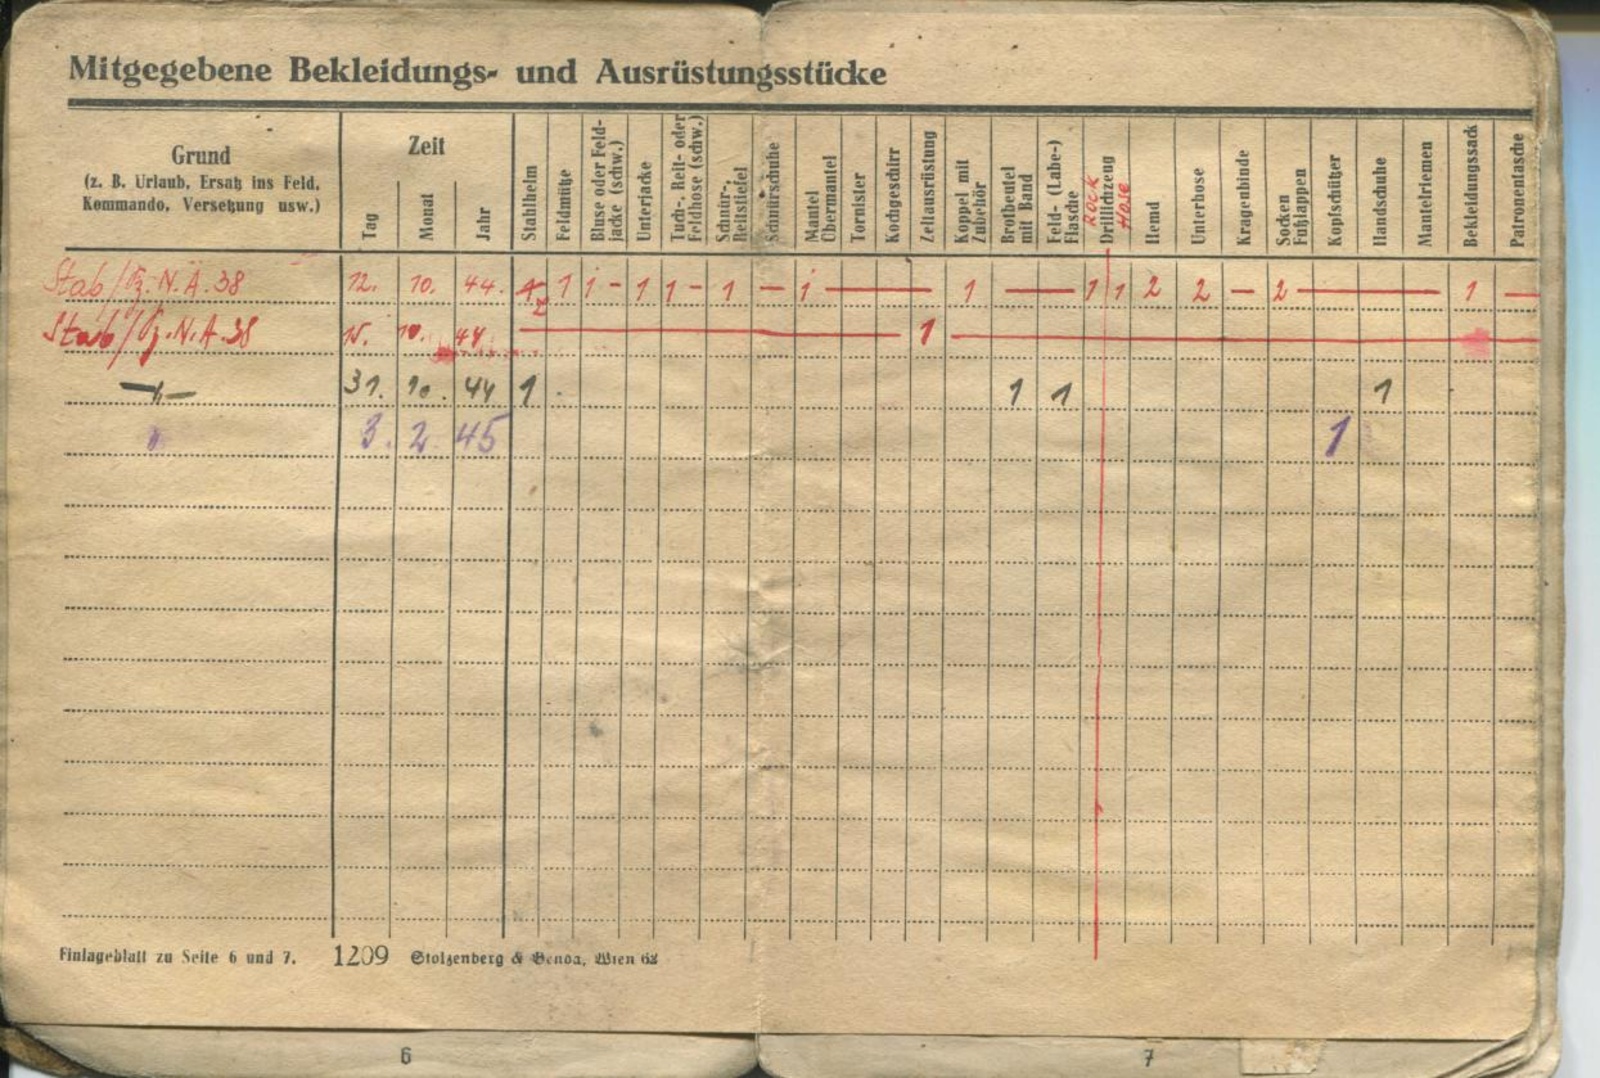 Mitgegebene Bekleidungs- und Ausrüstungsstücke
Grund
(z. B. Urlaub, Ersatz ins Feld,
Kommando, Versetzung usw.)
Zeit
Tag
Monat
Jahr
Stahlhelm
Feldmütze
Bluse oder Feld-
jacke (schw.)
Unterjacke
Tuch-, Reit- oder
Feldhose (schw.)
Schnür-,
Reitstiefel
Schnürschuhe
Mantel
Übermantel
Tornister
Kochgeschirr
Zeltausrüstung
Koppel mit
Zubehör
Brotbeutel
mit Band
Feld- (Labe-)
Flasche
Rock
Drillichzeug
Hose
Hemd
Unterhose
Kragenbinde
Socken
Fußlappen
Kopfschützer
Handschuhe
Mantelriemen
Bekleidungssack
Patronentasche
Stab/Pz.N.A.38 12. 10. 44. 1 1 - 1 1 - 1 — 1 — 1 — 1 1 2 2 — 2 — 1 —
Stab/Pz.N.A.38 15. 10. 44 — 1 —
—"— 31. 10. 44 1 1 1 1
" 3. 2. 45 1
Einlageblatt zu Seite 6 und 7. 1209 Stolzenberg & Benda, Wien 62
6
7